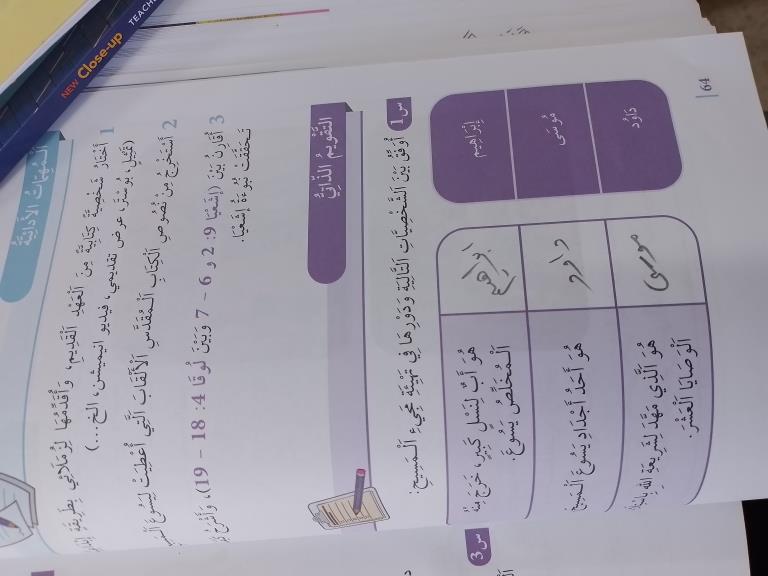 NEW Close-up
TEACHE
اَلْمُهِمَّاتُ الأَدائِيَّةُ
1 أَخْتارُ شَخْصِيَّةً كِتابِيَّةً مِنَ الْعَهْدِ القَديمِ، وَأُقَدِّمُها لِزُمَلائي بِطَريقَةِ
(تَمْثيلٍ، بوسْتَر، عرض تقديمي، فيديو انيميشن، الخ...)
2 أَسْتَخْرِجُ مِنْ نُصوصِ الْكِتابِ الْمُقَدَّسِ الْأَلْقابَ الَّتي أُعْطِيَتْ لِيَسوعَ
3 أُقارِنُ بَيْنَ (إشَعْيا 9: 2 و 6 – 7 وَبَيْنَ لُوقا 4: 18 – 19)، وَأَشْرَحُ
تَحَقَّقَتْ نُبُوءَةُ إِشَعْيا.
التَّقْويمُ الذّاتِيُّ
س1 أُوَفِّقُ بَيْنَ الشَّخْصِيَّاتِ التَّالِيَةِ وَدَوْرِها في تَهْيِئَةِ مَجيءِ الْمَسيحِ:
إِبْراهيم
مُوسَى
دَاوُد
ابراهيم
هُوَ أَبٌ لِنَسْلٍ كَبيرٍ، خَرَجَ مِنْهُ
الْمُخَلِّصُ يَسوعُ.
داود
هُوَ أَحَدُ أَجْدادِ يَسوعَ الْمَسيحِ
موسى
هُوَ الَّذي مَهَّدَ لِشَريعَةِ اللهِ
الْوَصايا الْعَشْرَ.
64
س3